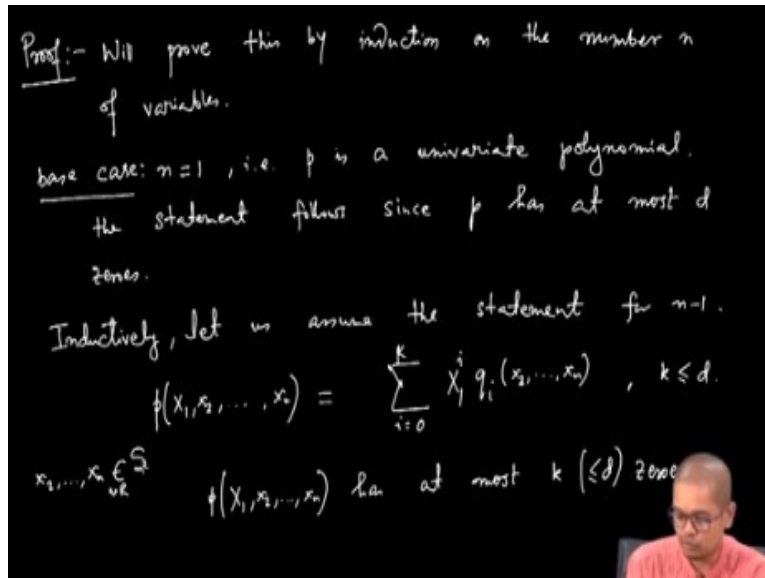 Proof:- Will prove this by induction on the number n
of variables.
base case: n=1, i.e. p is a univariate polynomial.
the statement follows since p has at most d
zeroes.
Inductively, let us assume the statement for n-1.
p(X₁, x₂, ..., xₙ) = ∑_{i=0}^{k} X₁^i q_i(x₂, ..., xₙ) , k ≤ d.
x₂, ..., xₙ ∈_{uR} S p(X₁, x₂, ..., xₙ) has at most k (≤d)